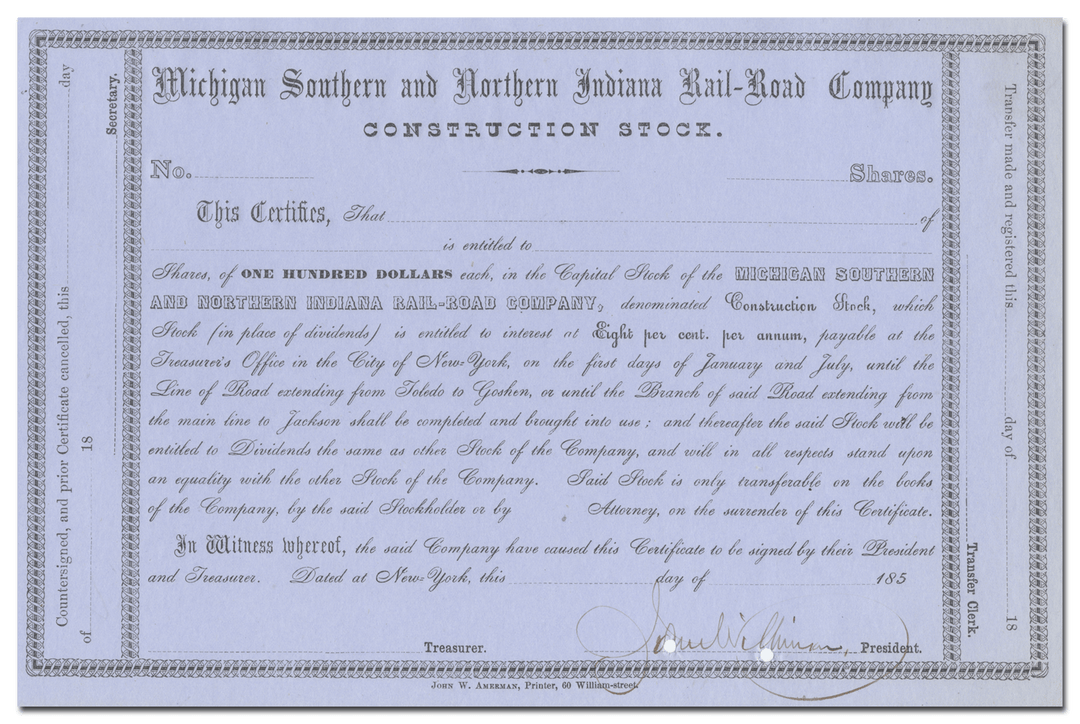 Michigan Southern and Northern Indiana Rail-Road Company
CONSTRUCTION STOCK.
No. Shares.
This Certifies, That of
is entitled to
Shares, of ONE HUNDRED DOLLARS each, in the Capital Stock of the MICHIGAN SOUTHERN
AND NORTHERN INDIANA RAIL-ROAD COMPANY, denominated Construction Stock, which
Stock (in place of dividends) is entitled to interest at Eight per cent. per annum, payable at the
Treasurer's Office in the City of New-York, on the first days of January and July, until the
Line of Road extending from Toledo to Goshen, or until the Branch of said Road extending from
the main line to Jackson shall be completed and brought into use; and thereafter the said Stock will be
entitled to Dividends the same as other Stock of the Company, and will in all respects stand upon
an equality with the other Stock of the Company. Said Stock is only transferable on the books
of the Company, by the said Stockholder or by Attorney, on the surrender of this Certificate.
In Witness whereof, the said Company have caused this Certificate to be signed by their President
and Treasurer. Dated at New-York, this day of 185
Treasurer. President.
JOHN W. AMERMAN, Printer, 60 William-street.
Countersigned, and prior Certificate cancelled, this day
of 18
Secretary.
Transfer made and registered this day of 18
Transfer Clerk.